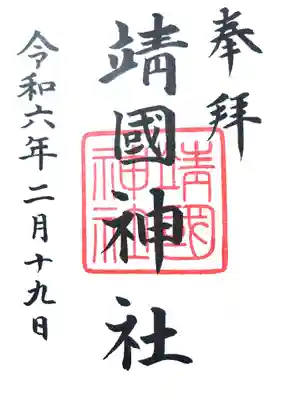 奉拝
靖國神社
靖國
神社
令和六年二月十九日